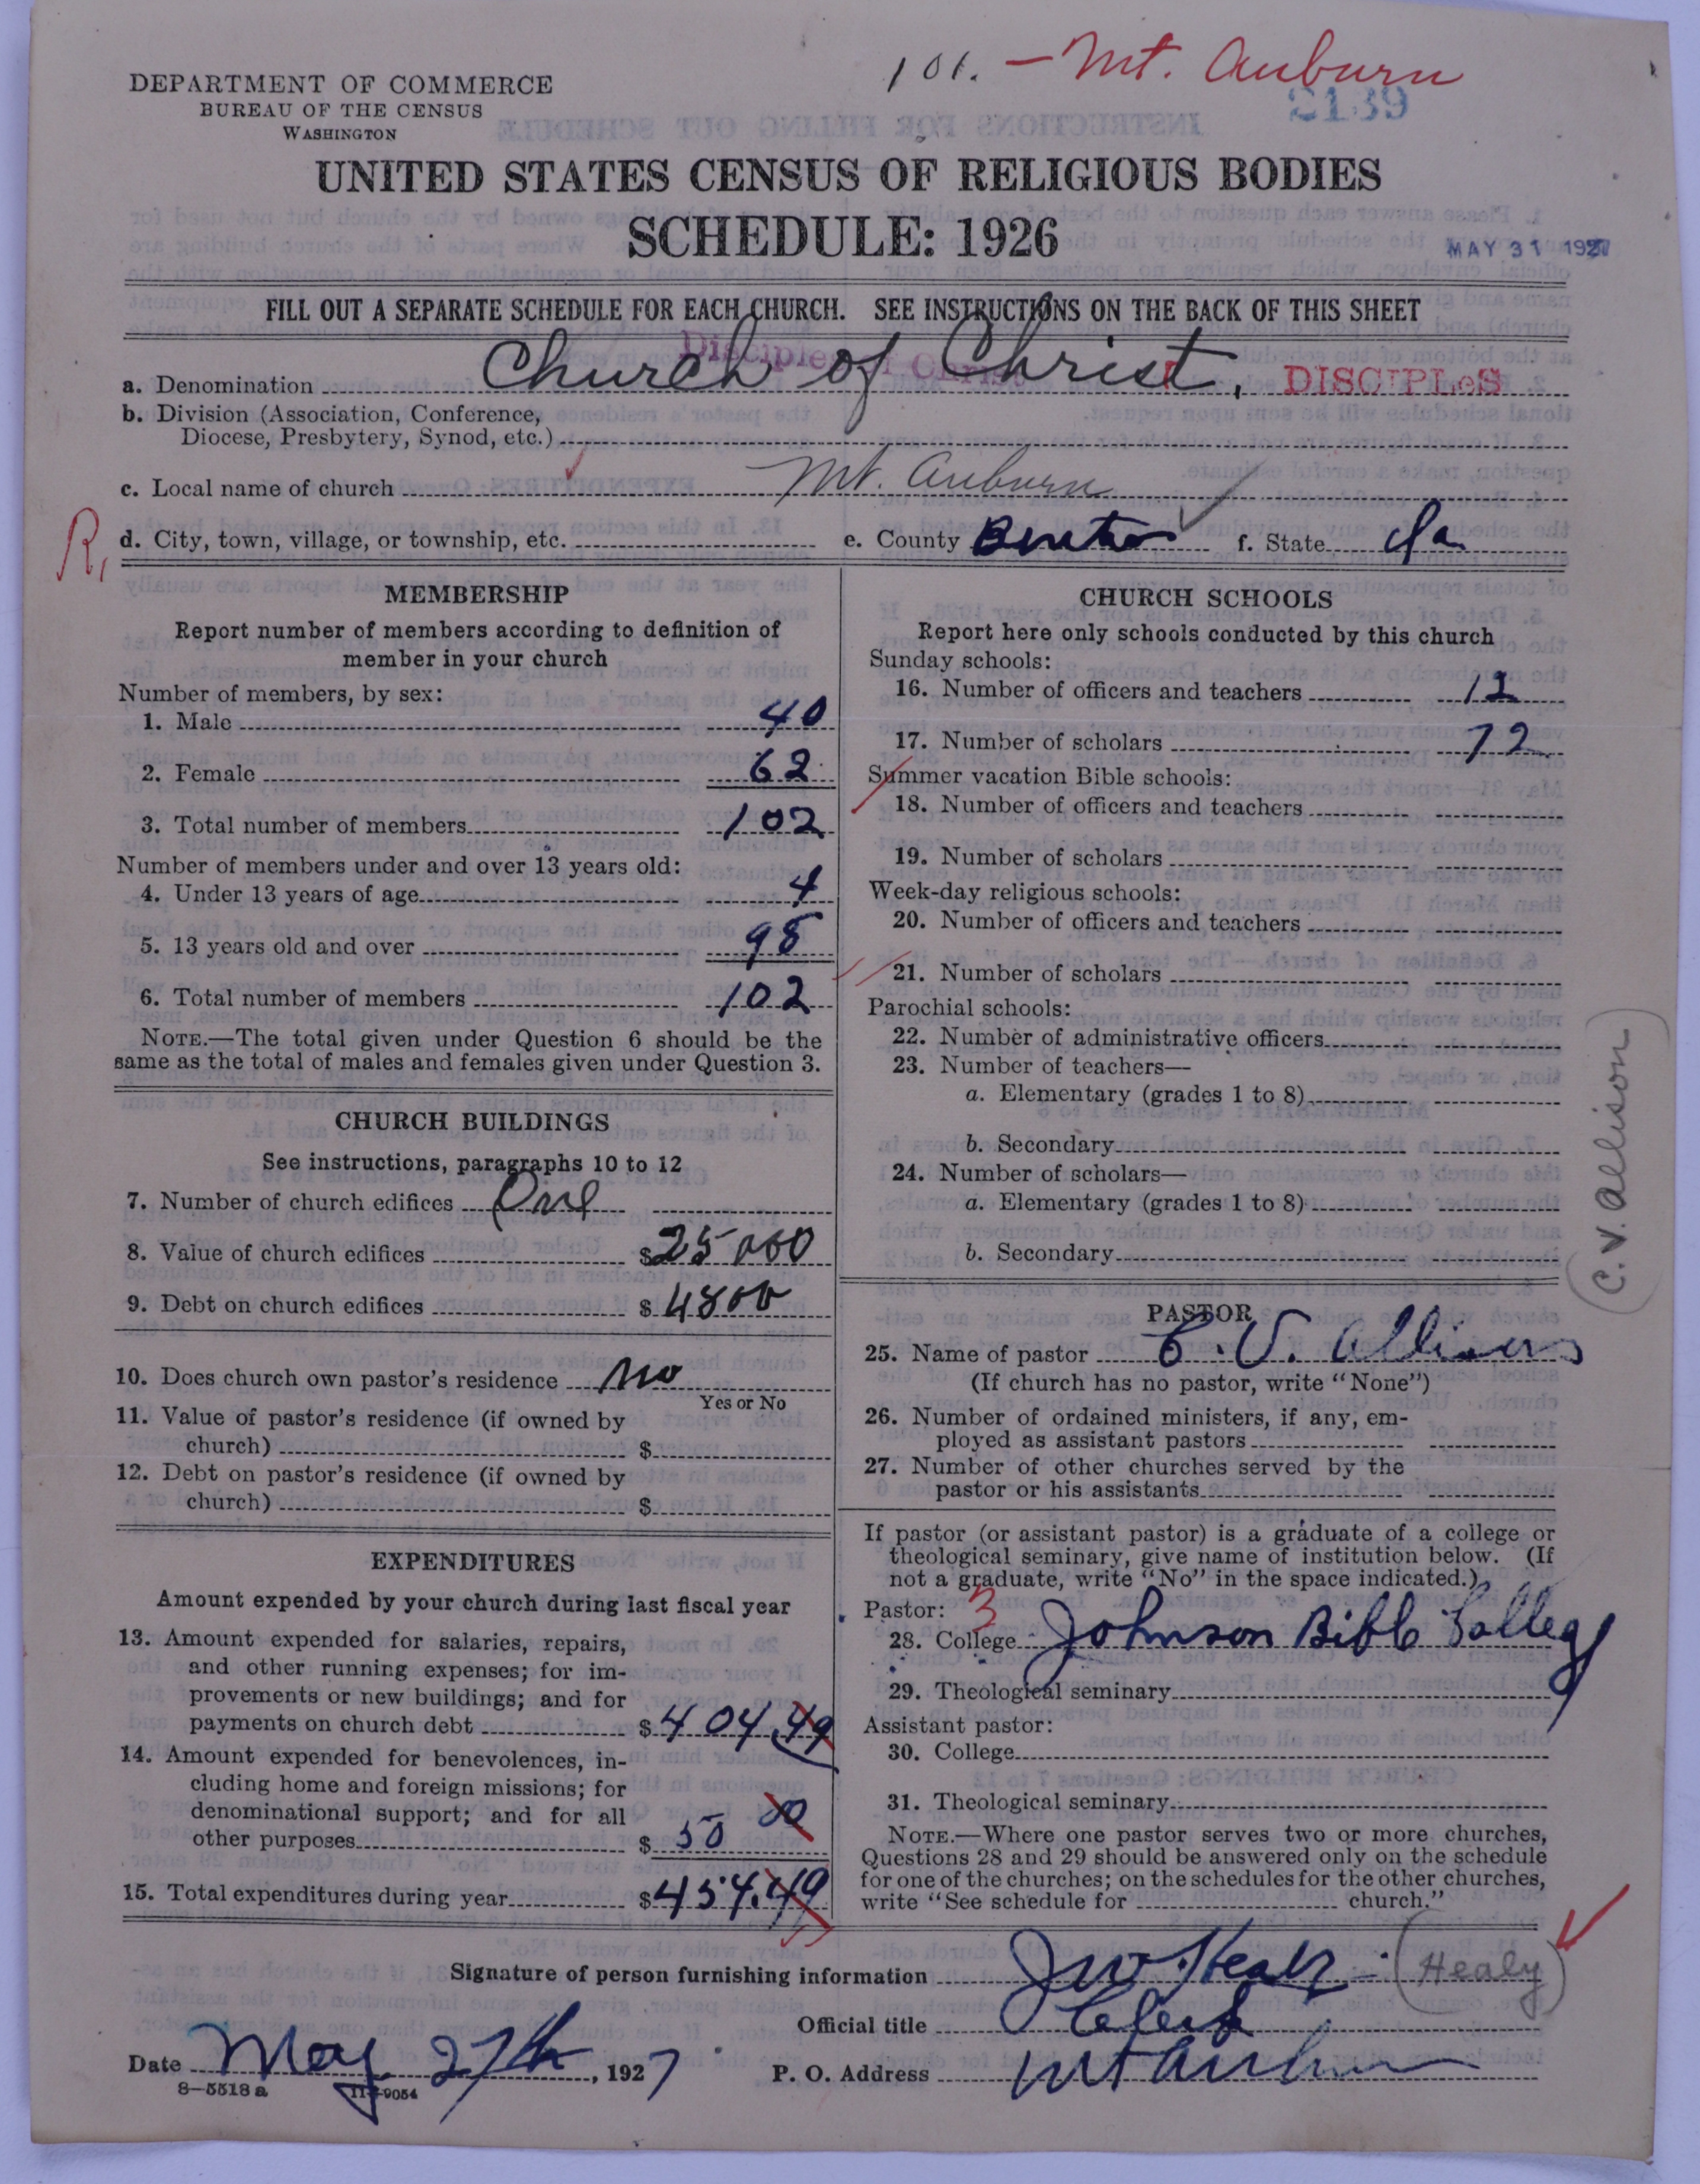 101. — Mt. Auburn
2139
DEPARTMENT OF COMMERCE
BUREAU OF THE CENSUS
WASHINGTON
UNITED STATES CENSUS OF RELIGIOUS BODIES
SCHEDULE: 1926
MAY 31 1927
FILL OUT A SEPARATE SCHEDULE FOR EACH CHURCH. SEE INSTRUCTIONS ON THE BACK OF THIS SHEET
Disciples of Christ
a. Denomination Church of Christ, DISCIPLeS
b. Division (Association, Conference,
Diocese, Presbytery, Synod, etc.)
c. Local name of church Mt. Auburn
R,
d. City, town, village, or township, etc. e. County Benton f. State Ia
MEMBERSHIP
Report number of members according to definition of
member in your church
Number of members, by sex:
1. Male 40
2. Female 62
3. Total number of members 102
Number of members under and over 13 years old:
4. Under 13 years of age 4
5. 13 years old and over 98
6. Total number of members 102
NOTE.—The total given under Question 6 should be the
same as the total of males and females given under Question 3.
CHURCH BUILDINGS
See instructions, paragraphs 10 to 12
7. Number of church edifices One
8. Value of church edifices $25000
9. Debt on church edifices $4800
10. Does church own pastor's residence No
Yes or No
11. Value of pastor's residence (if owned by
church) $
12. Debt on pastor's residence (if owned by
church) $
EXPENDITURES
Amount expended by your church during last fiscal year
13. Amount expended for salaries, repairs,
and other running expenses; for im-
provements or new buildings; and for
payments on church debt $404.49
14. Amount expended for benevolences, in-
cluding home and foreign missions; for
denominational support; and for all
other purposes $50 00
15. Total expenditures during year $454.49
CHURCH SCHOOLS
Report here only schools conducted by this church
Sunday schools:
16. Number of officers and teachers 12
17. Number of scholars 72
Summer vacation Bible schools:
18. Number of officers and teachers
19. Number of scholars
Week-day religious schools:
20. Number of officers and teachers
21. Number of scholars
Parochial schools:
22. Number of administrative officers
23. Number of teachers—
a. Elementary (grades 1 to 8)
b. Secondary
24. Number of scholars—
a. Elementary (grades 1 to 8)
b. Secondary
C. V. Allison
PASTOR
25. Name of pastor C. V. Allison
(If church has no pastor, write "None")
26. Number of ordained ministers, if any, em-
ployed as assistant pastors
27. Number of other churches served by the
pastor or his assistants
If pastor (or assistant pastor) is a graduate of a college or
theological seminary, give name of institution below. (If
not a graduate, write "No" in the space indicated.)
Pastor: 3
28. College Johnson Bible College
29. Theological seminary
Assistant pastor:
30. College
31. Theological seminary
NOTE.—Where one pastor serves two or more churches,
Questions 28 and 29 should be answered only on the schedule
for one of the churches; on the schedules for the other churches,
write "See schedule for church."
Signature of person furnishing information J W Healy (Healy)
Official title Clerk
Date May 27th, 1927 P. O. Address Mt Auburn
8—5518 a 11—9054